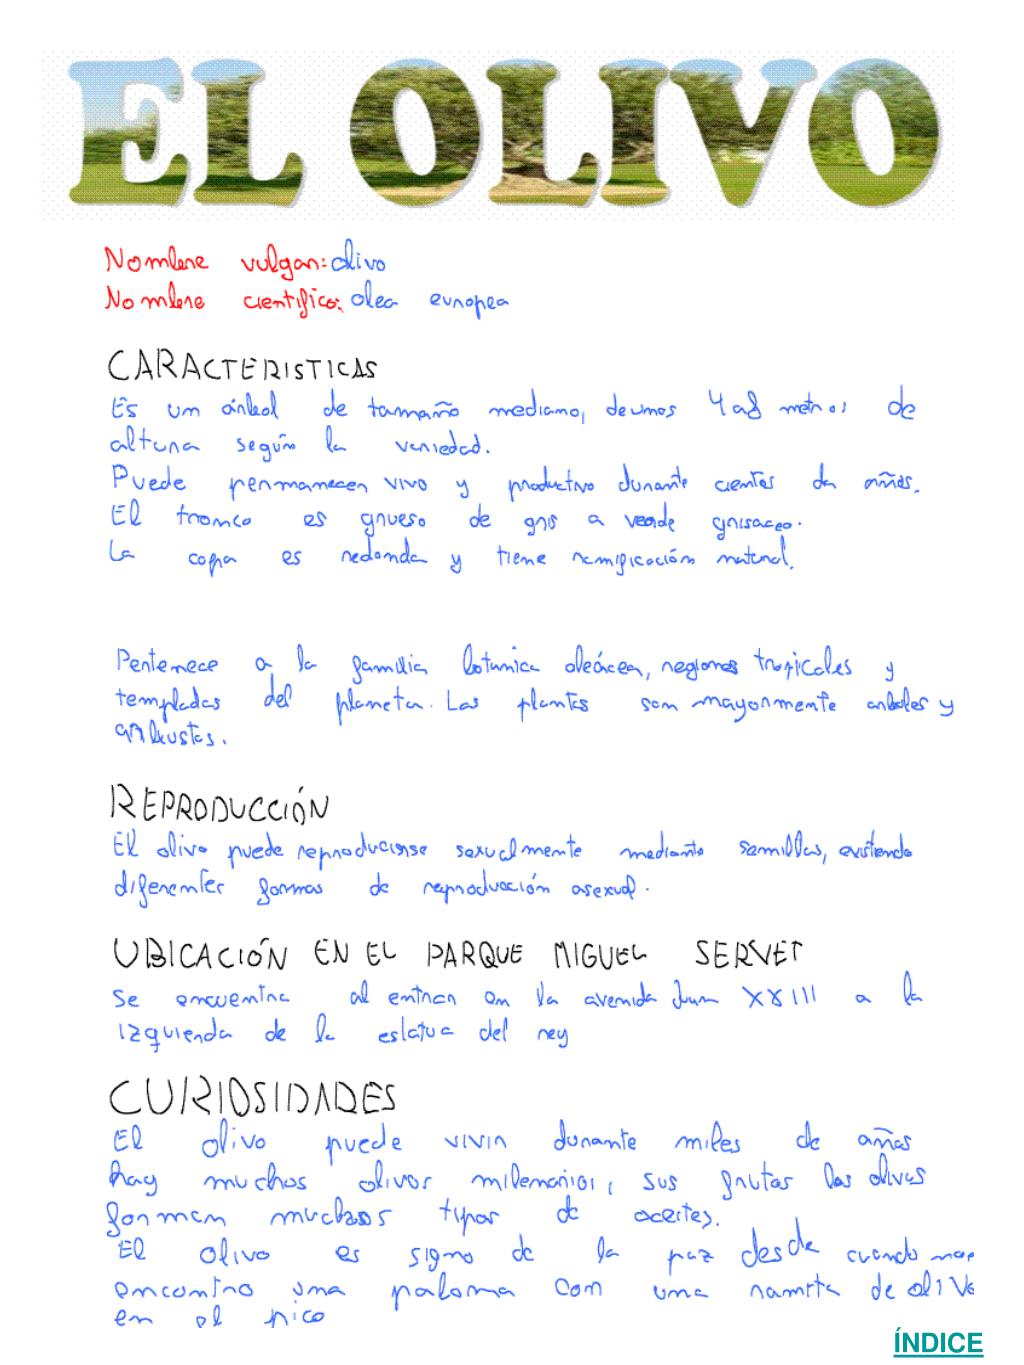 EL OLIVO
Nombre vulgar: olivo
Nombre cientifico: olea europea
CARACTERISTICAS
Es un árbol de tamaño mediano, de unos 4 a 8 metros de
altura según la variedad.
Puede permanecer vivo y productivo durante cientos de años.
El tronco es grueso de gris a verde grisaceo.
La copa es redonda y tiene ramificación natural.
Pertenece a la familia botanica oleácea, regiones tropicales y
templadas del planeta. Las plantas son mayormente arboles y
arbustos.
REPRODUCCIÓN
El olivo puede reproducirse sexualmente mediante semillas, existiendo
diferentes formas de reproducción asexual.
UBICACIÓN EN EL PARQUE MIGUEL SERVET
Se encuentra al entrar en la avenida Juan XXIII a la
izquierda de la estatua del rey
CURIOSIDADES
El olivo puede vivir durante miles de años
hay muchos olivos milenarios, sus frutas las olivas
forman muchos tipos de aceites.
El olivo es signo de la paz desde cuando noe
encontro una paloma con una ramita de olivo
en el pico
ÍNDICE